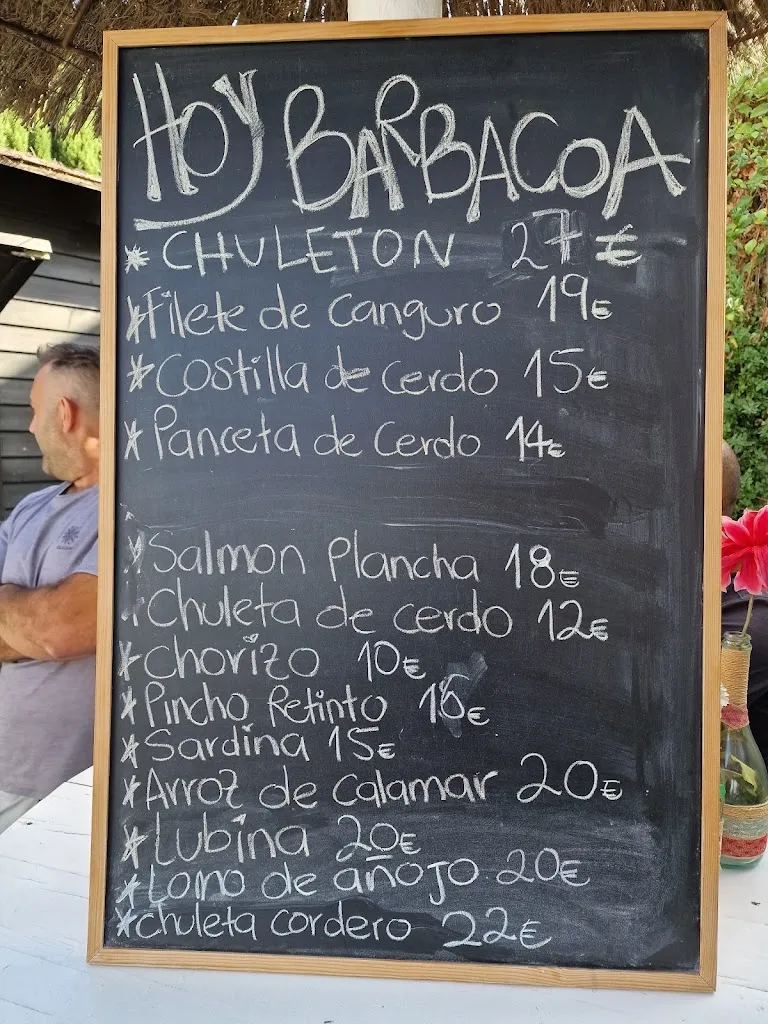 Hoy BARBACOA
* CHULETON 27 €
* Filete de canguro 19€
* Costilla de cerdo 15€
* Panceta de cerdo 14€
* Salmon plancha 18€
* Chuleta de cerdo 12€
* Chorizo 10€
* Pincho Retinto €
* Sardina 15€
* Arroz de calamar 20€
* Lubina 20€
* Lomo de añojo 20€
* chuleta cordero 22€